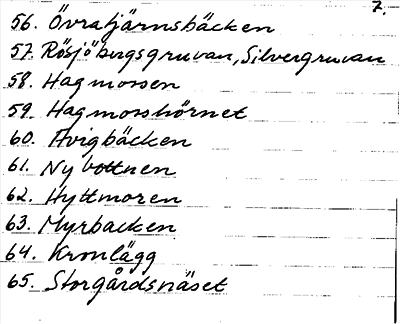 7.
56. Övratjärnsbäcken
57. Rösjöbergsgruvan, Silvergruvan
58. Hagmossen
59. Hagmosshörnet
60. Avigbäcken
61. Nybottnen
62. Hyttmoren
63. Myrbacken
64. Kronlägg
65. Storgårdsnäset